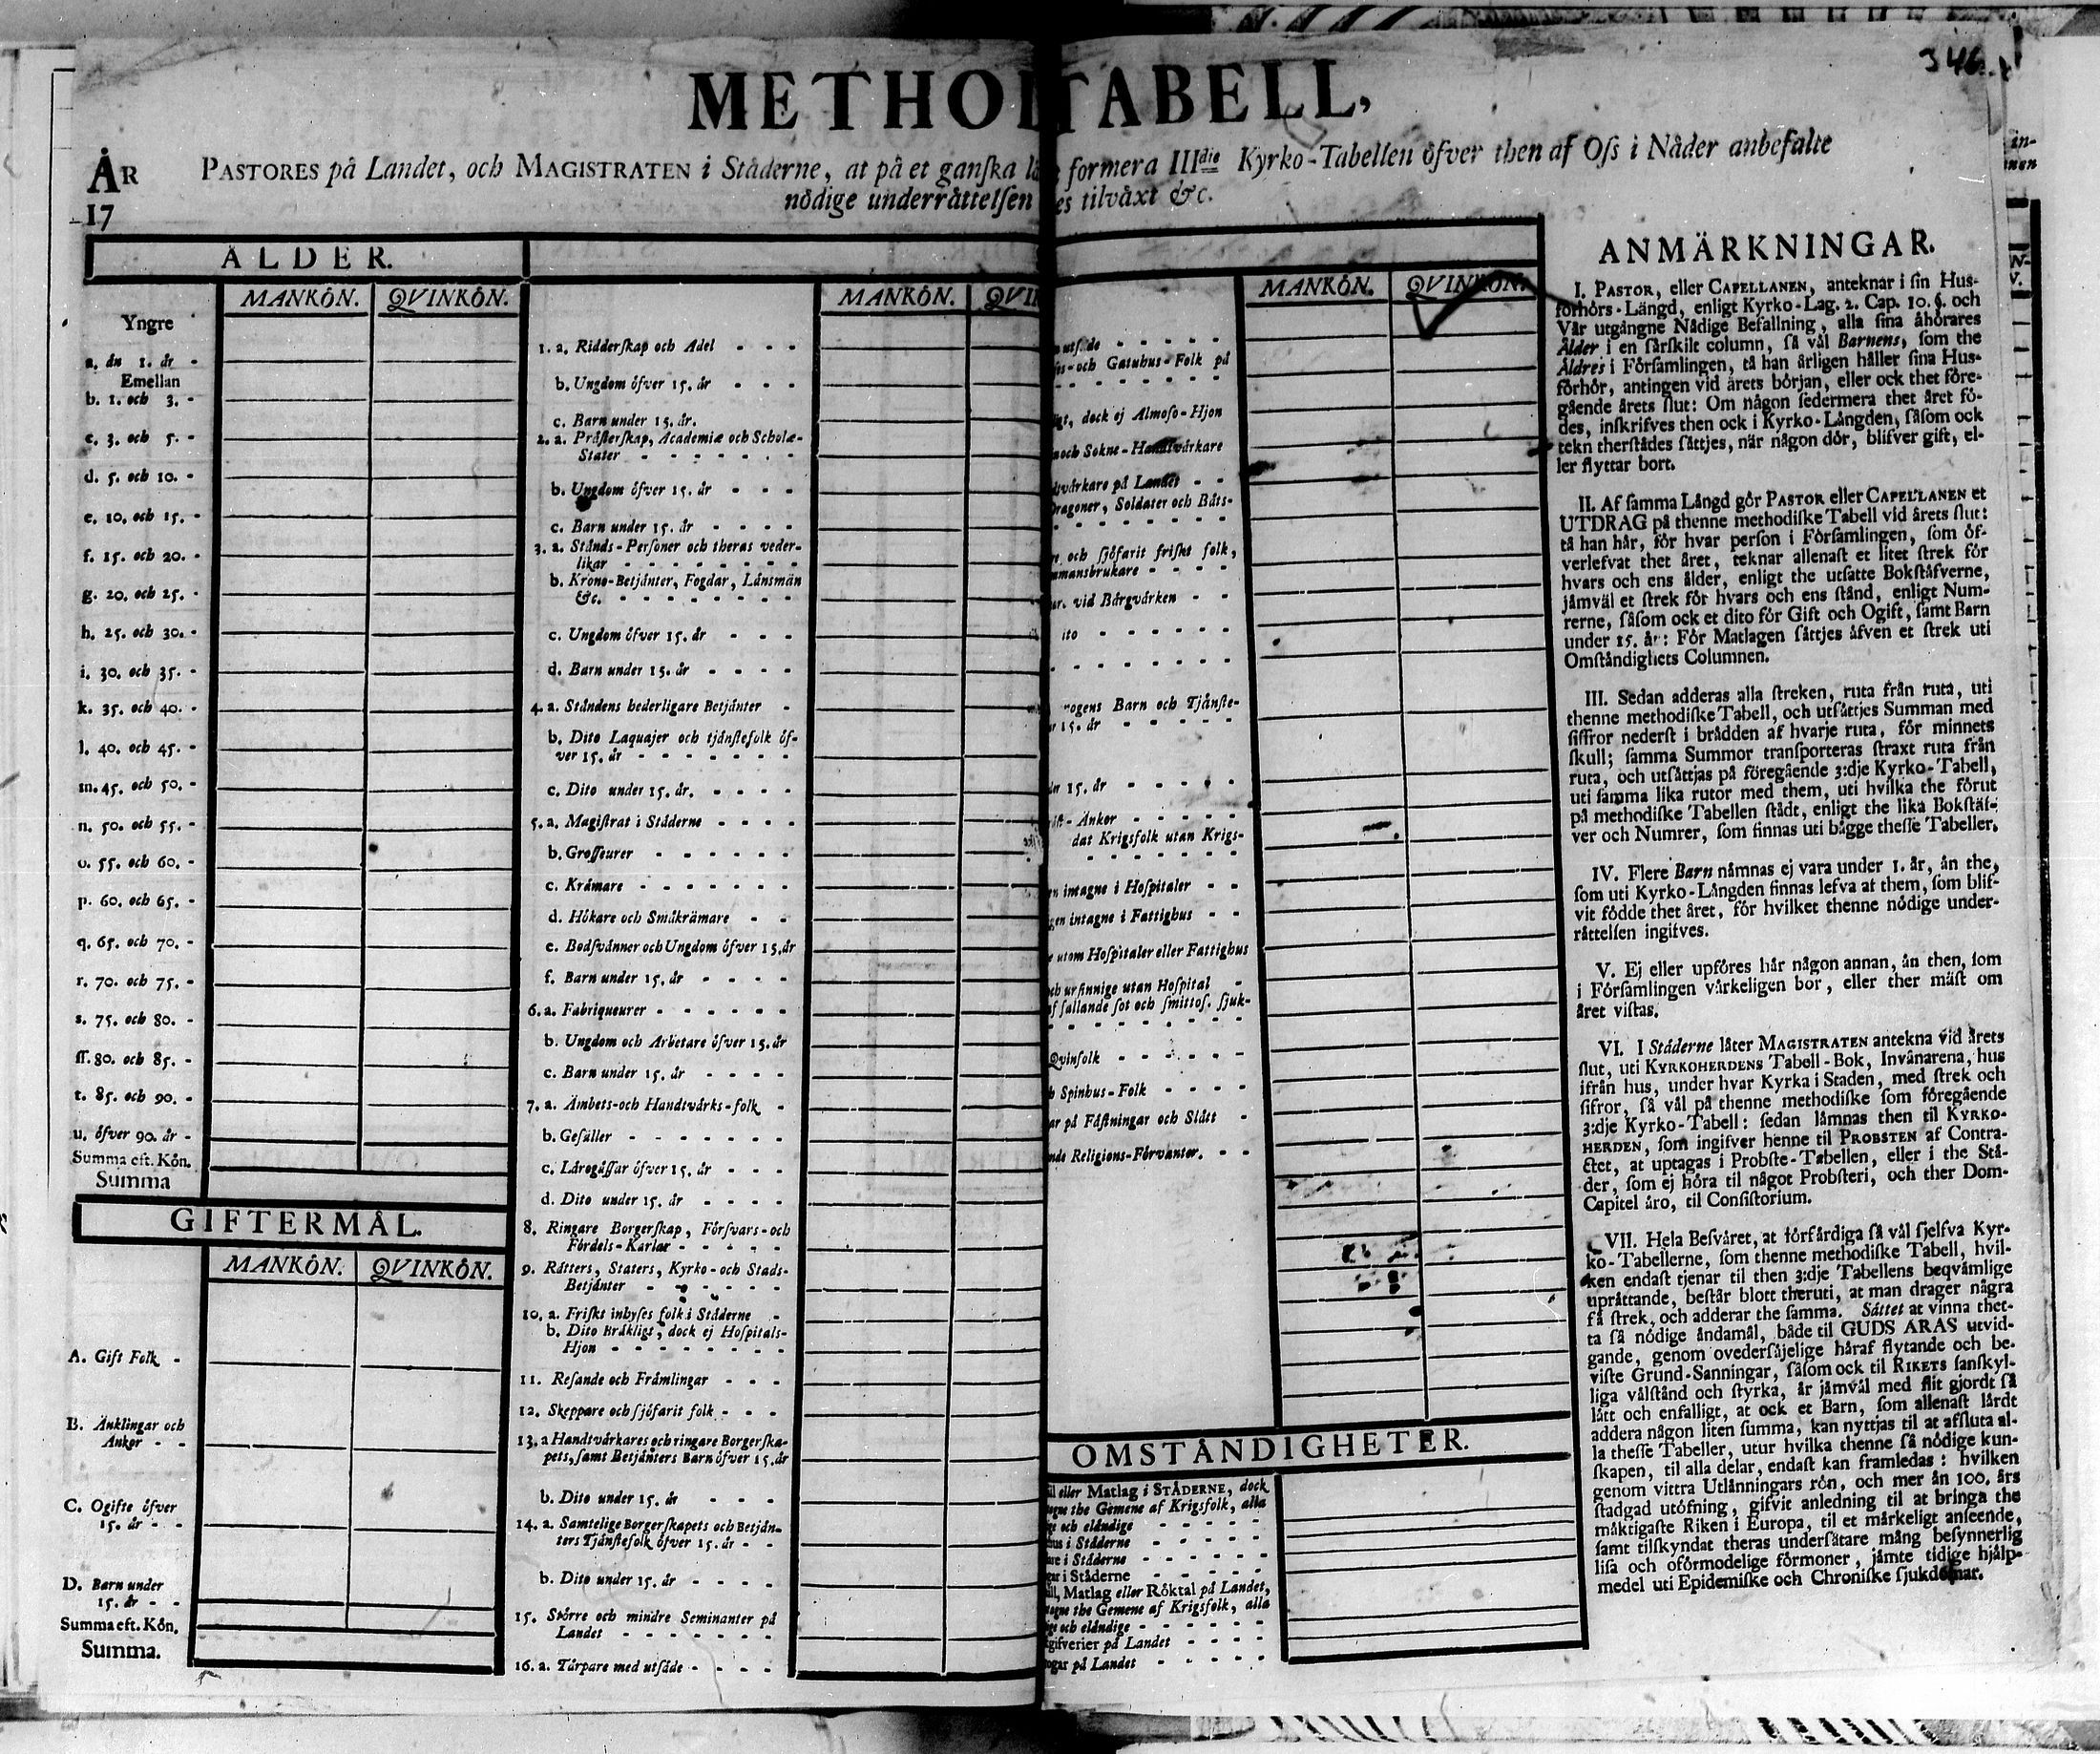 346.
METHO TABELL,
ÅR PASTORES på Landet, och MAGISTRATEN i Ståderne, at på et ganſka formera IIIdie Kyrko-Tabellen öfver then af Oſs i Nåder anbefalte
17 nödige underråttelſen es tilvåxt &c.
ÅLDER.
MANKÖN. QVINKÖN.
Yngre
a. ån 1. år -
Emellan
b. 1. och 3. -
c. 3. och 5. -
d. 5. och 10. -
e. 10. och 15. -
f. 15. och 20. -
g. 20. och 25. -
h. 25. och 30. -
i. 30. och 35. -
k. 35. och 40. -
l. 40. och 45. -
m. 45. och 50. -
n. 50. och 55. -
o. 55. och 60. -
p. 60. och 65. -
q. 65. och 70. -
r. 70. och 75. -
s. 75. och 80. -
ſſ. 80. och 85. -
t. 85. och 90. -
u. öfver 90. år -
Summa eft. Kön.
Summa
GIFTERMÅL.
MANKÖN. QVINKÖN.
A. Gift Folk -
B. Änklingar och
Ånkor - -
C. Ogifte öfver
15. år - -
D. Barn under
15. år - -
Summa eft. Kön.
Summa.
MANKÖN. QVIN
1. a. Ridderſkap och Adel - - -
b. Ungdom öfver 15. år - - -
c. Barn under 15. år.
2. a. Pråſterſkap, Academiæ och Scholæ-
Stater - - - - - - -
b. Ungdom öfver 15. år - - -
c. Barn under 15. år - - - -
3. a. Stånds-Perſoner och theras veder-
likar - - - - - - - -
b. Krono-Betjånter, Fogdar, Lånsmån
&c. - - - - - - - -
c. Ungdom öfver 15. år - - -
d. Barn under 15. år - - - -
4. a. Ståndens hederligare Betjånter -
b. Dito Laquajer och tjånſtefolk öf-
ver 15. år - - - - - - -
c. Dito under 15. år. - - - -
5. a. Magiſtrat i Ståderne - - - -
b. Groſſeurer - - - - - -
c. Kråmare - - - - - - -
d. Hökare och Småkråmare - -
e. Bodſvånner och Ungdom öfver 15. år
f. Barn under 15. år - - - -
6. a. Fabriqueurer - - - - - -
b. Ungdom och Arbetare öfver 15. år
c. Barn under 15. år - - - -
7. a. Åmbets-och Handtvårks-folk -
b. Geſåller - - - - - - -
c. Lårogåſſar öfver 15. år - - -
d. Dito under 15. år - - - -
8. Ringare Borgerſkap, Förſvars-och
Fördels-Karlar - - - - -
9. Råtters, Staters, Kyrko-och Stads-
Betjånter - - - - - -
10. a. Friſkt inhyſes folk i Ståderne -
b. Dito Bråkligt, dock ej Hoſpitals-
Hjon - - - - - - - -
11. Reſande och Fråmlingar - - -
12. Skeppare och ſjöfarit folk - - -
13. a Handtvårkares och ringare Borgerſka-
pets, ſamt Betjånters Barn öfver 15. år
b. Dito under 15. år - - -
14. a. Samtelige Borgerſkapets och Betjån-
ters Tjånſtefolk öfver 15. år - -
b. Dito under 15. år - - - -
15. Större och mindre Seminanter på
Landet - - - - - - -
16. a. Tårpare med utſåde - - - -
MANKÖN. QVINKÖN.
utſåde - - - - -
och Gatuhus-Folk på
- - - - - - -
dock ej Almoſo-Hjon
och Sokne-Handtvårkare
vårkare på Landet - -
Dragoner, Soldater och Båts-
- - - - - - -
och ſjöfarit friſkt folk,
mansbrukare - - - -
vid Bårgvårken - -
ito - - - - - -
- - - - - - -
ogens Barn och Tjånſte-
15. år - - - - -
15. år - - - - -
Ånkor - - - - -
dat Krigsfolk utan Krigs-
- - - - - - -
intagne i Hoſpitaler - -
intagne i Fattighus - -
utom Hoſpitaler eller Fattighus
och urſinnige utan Hoſpital -
af fallande ſot och ſmittoſ. ſjuk-
- - - - - - -
Qvinfolk - - - - -
Spinhus-Folk - - - -
på Fåſtningar och Slått -
Religions-Förvanter. - -
OMSTÅNDIGHETER.
eller Matlag i STÅDERNE, dock
the Gemene af Krigsfolk, alla
och elåndige - - - - -
hus i Ståderne - - - - -
i Ståderne - - - - -
i Ståderne - - - - -
Matlag eller Röktal på Landet,
the Gemene af Krigsfolk, alla
och elåndige - - - - - -
gifverier på Landet - - - -
på Landet - - - - -
ANMÄRKNINGAR.
I. PASTOR, eller CAPELLANEN, anteknar i ſin Hus-
förhörs-Längd, enligt Kyrko-Lag. 2. Cap. 10. §. och
Vår utgångne Nådige Befallning, alla ſina åhörares
Ålder i en ſårſkilt column, ſå vål Barnens, ſom the
Åldres i Förſamlingen, tå han årligen håller ſina Hus-
förhör, antingen vid årets början, eller ock thet före-
gående årets ſlut: Om någon ſedermera thet året fö-
des, inſkrifves then ock i Kyrko-Långden, ſåſom ock
tekn therſtådes ſåttjes, når någon dör, blifver gift, el-
ler flyttar bort.
II. Af ſamma Långd gör PASTOR eller CAPELLANEN et
UTDRAG på thenne methodiſke Tabell vid årets ſlut:
tå han hår, för hvar perſon i Förſamlingen, ſom öf-
verlefvat thet året, teknar allenaſt et litet ſtrek för
hvars och ens ålder, enligt the utſatte Bokſtåfverne,
jåmväl et ſtrek för hvars och ens ſtånd, enligt Num-
rerne, ſåſom ock et dito för Gift och Ogift, ſamt Barn
under 15. år: För Matlagen ſåttjes åfven et ſtrek uti
Omſtåndighets Columnen.
III. Sedan adderas alla ſtreken, ruta från ruta, uti
thenne methodiſke Tabell, och utſåttjes Summan med
ſiffror nederſt i brådden af hvarje ruta, för minnets
ſkull; ſamma Summor tranſporteras ſtraxt ruta från
ruta, och utſåttjas på föregående 3:dje Kyrko-Tabell,
uti ſamma lika rutor med them, uti hvilka the förut
på methodiſke Tabellen ſtådt, enligt the lika Bokſtåf-
ver och Numrer, ſom finnas uti bågge theſſe Tabeller.
IV. Flere Barn nåmnas ej vara under 1. år, ån the,
ſom uti Kyrko-Långden finnas lefva af them, ſom blif-
vit födde thet året, för hvilket thenne nödige under-
råttelſen ingifves.
V. Ej eller upföres hår någon annan, ån then, ſom
i Förſamlingen vårkeligen bor, eller ther måſt om
året viſtas.
VI. I Ståderne låter MAGISTRATEN antekna vid årets
ſlut, uti KYRKOHERDENS Tabell-Bok, Invånarena, hus
ifrån hus, under hvar Kyrka i Staden, med ſtrek och
ſifror, ſå vål på thenne methodiſke ſom föregående
3:dje Kyrko-Tabell: ſedan låmnas then til KYRKO-
HERDEN, ſom ingifver henne til PROBSTEN af Contra-
ctet, at uptagas i Probſte-Tabellen, eller i the Stå-
der, ſom ej höra til något Probſteri, och ther Dom-
Capitel åro, til Conſiſtorium.
VII. Hela Beſvåret, at förfårdiga ſå vål ſjelfva Kyr-
ko-Tabellerne, ſom thenne methodiſke Tabell, hvil-
ken endaſt tjenar til then 3:dje Tabellens beqvåmlige
upråttande, beſtår blott theruti, at man drager några
få ſtrek, och adderar the ſamma. Såttet at vinna thet-
ta ſå nödige åndamål, både til GUDS ÅRAS utvid-
gande, genom ovederſåjelige håraf flytande och be-
viſte Grund-Sanningar, ſåſom ock til RIKETS ſanſkyl-
liga vålſtånd och ſtyrka, år jåmvål med flit gjordt ſå
lått och enfalligt, at ock et Barn, ſom allenaſt lårdt
addera någon liten ſumma, kan nyttjas til at afſluta al-
la theſſe Tabeller, utur hvilka thenne ſå nödige kun-
ſkapen, til alla delar, endaſt kan framledas: hvilken
genom vittra Utlånningars rön, och mer ån 100. års
ſtadgad utöfning, gifvit anledning til at bringa the
måktigaſte Riken i Europa, til et mårkeligt anſeende,
ſamt tilſkyndat theras underſåtare mång beſynnerlig
liſa och oförmodelige förmoner, jåmte tidige hjålp-
medel uti Epidemiſke och Chroniſke ſjukdomar.